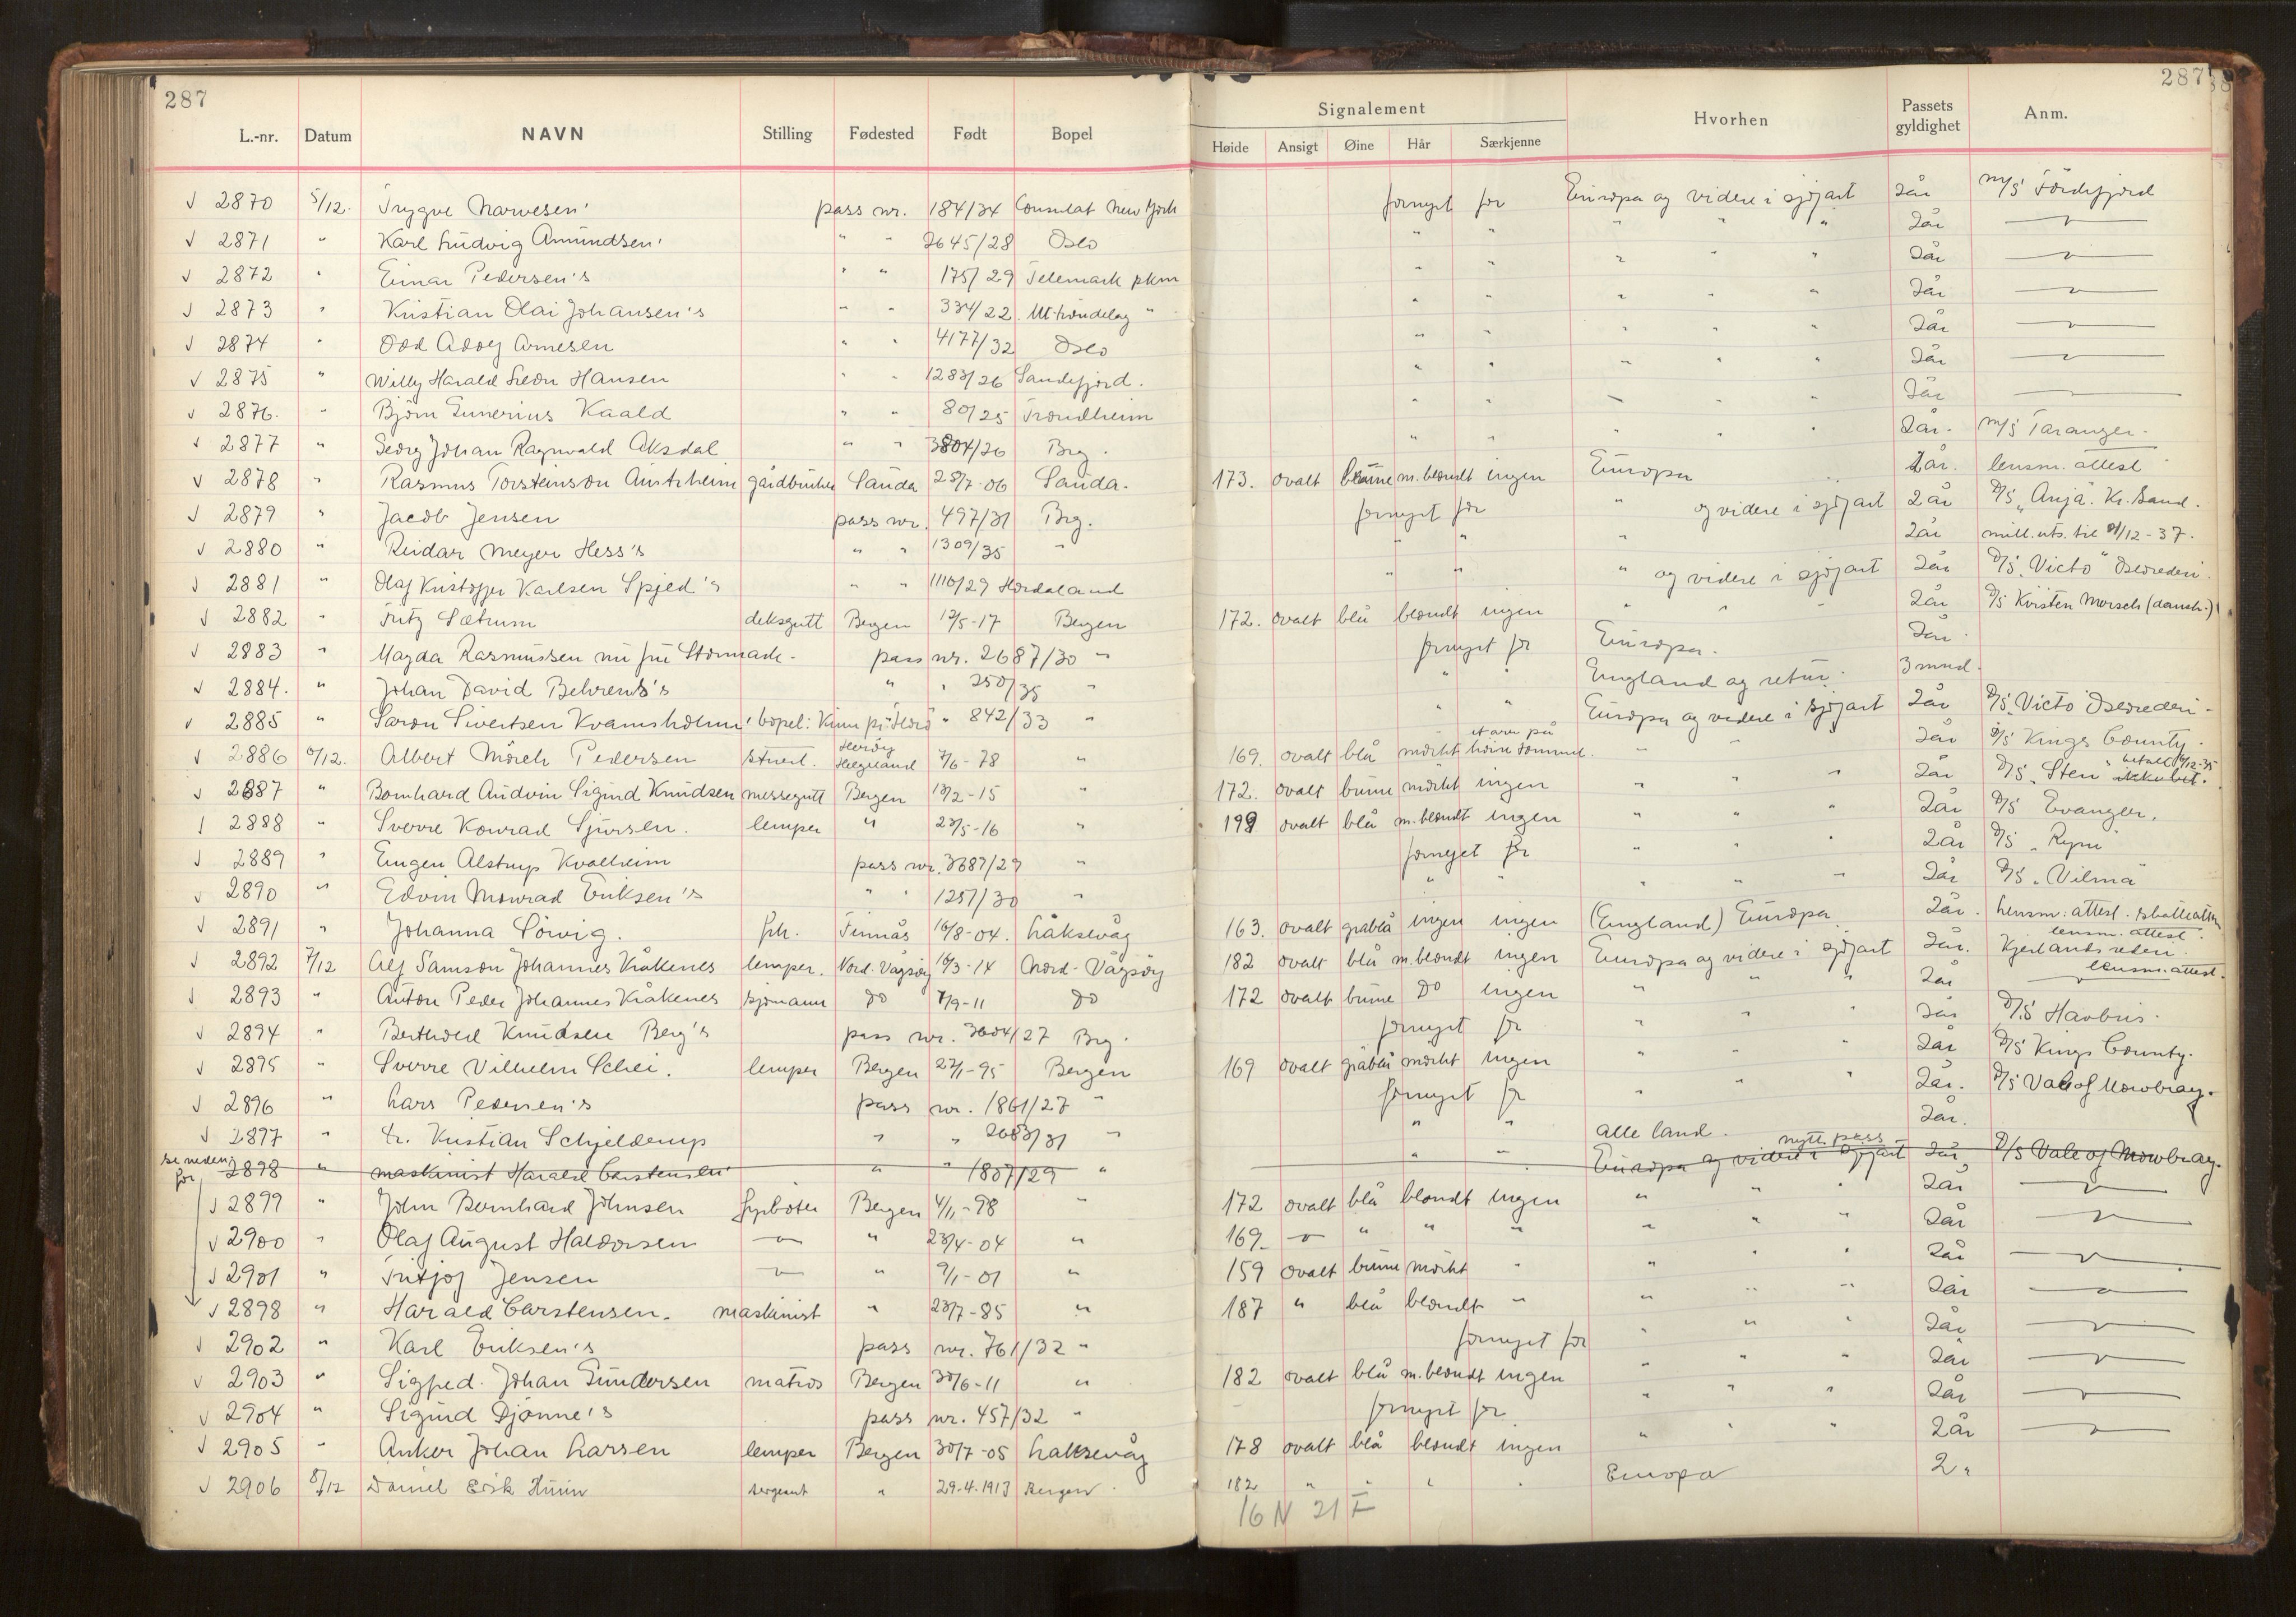 287
287
Signalement
L.-nr. Datum NAVN Stilling Fødested Født Bopel Høide Ansigt Øine Hår Særkjenne Hvorhen Passets gyldighet Anm.
√ 2870 5/12. Trygve Narvesen' pass nr. 184/34 Consulat New York fornyet for Europa og videre i sjøfart 2år m/s Fördefjord
√ 2871 " Karl Ludvig Amundsen' " " 2645/28 Oslo " " " " " 2år
√ 2872 " Einar Pedersen's " " 175/29 Telemark pkm " " " " 2år
√ 2873 " Kristian Olai Johansen's " " 334/22. " " " " " " 2år
√ 2874 " Odd Adolf Arnesen " " 4177/32 Oslo " " " " " 2år
√ 2875 " Willy Harald Hansen " " 1283/26 Sandefjord. " " " " " 2år
√ 2876. " Bjørn Gunerius Kaald " " 80/25 Trondheim " " " " 2år
√ 2877 " Georg Johan Ragnvald Aksdal " " 3804/26 Brg. " " " " " 2år. m/s Taranger.
√ 2878 " Rasmus Torsteinson Austrheim gårdbruker Sauda 25/7-06 Sauda. 173. ovalt brune m.blondt ingen Europa 2år. lensm. attest
√ 2879 " Jacob Jensen pass nr. 497/31 Brg. fornyet for " og videre i sjøfart 2år D/S "Anja". Kr.Sand.
√ 2880 " Reidar Meyer Hess's " " 1309/35 " " " " 2år mill. uts. til 31/12-37.
√ 2881 " Olaf Kristoffer Karlsen Spjeld's " " 1110/29 Hordaland " " " og videre i sjøfart 2år D/S "Victo" Oslorederi.
√ 2882 " Fritz Sætrum deksgutt Bergen 12/5-17 Bergen 172. ovalt blå blondt ingen " " " 2år D/S Kirsten Mærsk (dansk.)
√ 2883 " Magda Rasmussen nu fru Stormark. pass nr. 2687/30 " fornyet for Europa. 2år.
√ 2884. " Johan David Behrens's " " 250/35 " " " England og retur. 3 mnd.
√ 2885 " Søren Sivertsen Kvamsholm' bopel: Kinn " 842/33 " " " Europa og videre i sjøfart 2år D/S "Victo" Oslorederi.
√ 2886 6/12. Albert Mörch Pedersen stuert. Herøy Helgeland 7/6-78 " 169. ovalt blå mörkt et arr på høire tommel. " " 2år D/S Kings County.
√ 2887 " Bernhard Audvin Sigurd Knudsen messegutt Bergen 13/2-15 " 172. ovalt brune mörkt ingen " " 2år D/S "Sten" ikke bet. betalt 10/12-35
√ 2888 " Sverre Konrad Sjursen. lemper " 23/5-16 " 199 ovalt blå m.blondt ingen " " " 2år D/S Evanger.
√ 2889 " Eugen Alstrup Kvalheim pass nr. 3687/29 " fornyet for " " " 2år D/S "Rym"
√ 2890 " Edvin Monrad Eriksen's " " 1257/30 " " " " " " 2år D/S "Vilma"
√ 2891 " Johanna Sörvig. frk. Finnås 16/8-04. Laksevåg 163. ovalt gråblå ingen ingen (England) Europa 2år. Lensm. attest.
√ 2892 7/12 Alf Samson Johannes Kråkenes lemper. Nord-Vågsöy 16/3-14 Nord-Vågsöy 182 ovalt blå m.blondt ingen Europa og videre i sjøfart 2år. Kjerlands rederi. lensm. attest.
√ 2893 " Anton Peder Johannes Kråkenes sjömann do 7/9-11 do 172 ovalt brune do ingen " " " 2år lensm. attest.
√ 2894 " Berthold Knudsen Berg's pass nr. 3604/27 Brg. fornyet for " " " 2år D/S Havbris.
√ 2895 " Sverre Vilhelm Schei. lemper Bergen 22/1-95 Bergen 169 ovalt gråblå mörkt ingen " " " 2år D/S Kings County.
√ 2896 " Lars Pedersen's pass nr. 1861/27 " fornyet for " " " 2år. D/S Vale of Mowbray.
√ 2897 " Kristian Schjelderup " " 2683/31 " " " alle land. 2år.
se nedenfor 2898 " maskinist Harald Carstensen' " " 1807/29 " " " Europa og videre i sjøfart nytt pass 2år D/S Vale of Mowbray.
√ 2899 " John Bernhard Johnsen fyrböter Bergen 4/11-98 " 172 ovalt blå blondt ingen " " " 2år
√ 2900 " Olaf August Haldorsen " 23/4-04 " 169. " " " " " " 2år
√ 2901 " Fritjof Jensen " 9/1-01 " 159 ovalt brune mörkt " " " " 2år
√ 2898 " Harald Carstensen. maskinist " 23/7-85 " 187 " blå blondt " " " " 2år
√ 2902 " Karl Eriksen's pass nr. 761/32 " fornyet for " " " 2år
√ 2903 " Sigfred Johan Gundersen matros Bergen 30/6-11 " 182 ovalt blå m.blondt ingen " " " 2år
√ 2904 " Sigurd Djønne's pass nr. 457/32 " fornyet for " " " 2år
√ 2905 " Anker Johan Larsen lemper Bergen 30/7-05 Laksevåg 178 ovalt blå blondt ingen " " " 2år
√ 2906 8/12 Daniel Erik sergeant " 29.4.1913 Bergen 182 " " " " Europa 2 "
16 N 21 F